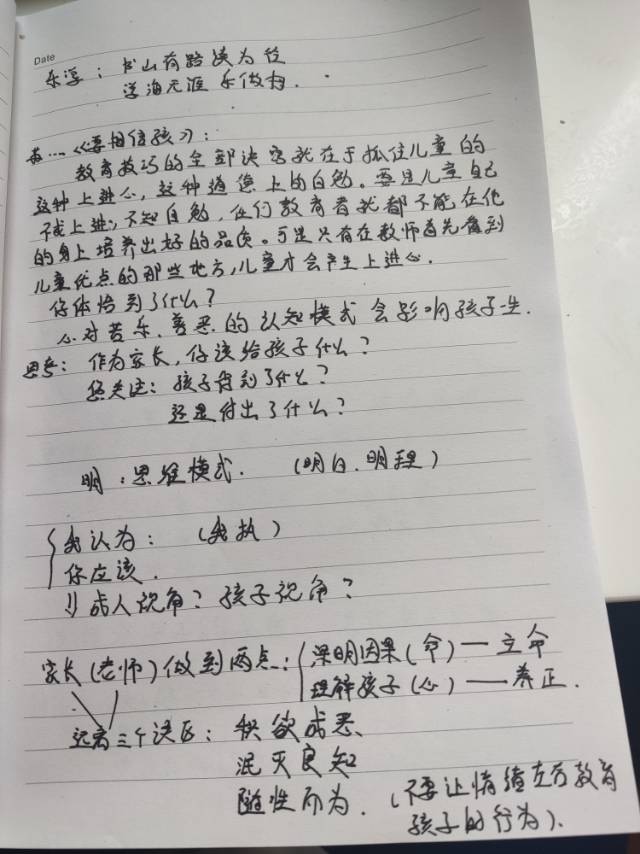 Date
乐学：书山有路读为径
学海无涯乐做舟.
《要相信孩》：
教育技巧的全部诀窍就在于抓住儿童的
这种上进心，这种道德上的自勉。要是儿童自己
不求上进，不知自勉，任何教育者就都不能在他
的身上培养出好的品质。可是只有在教师首先看到
儿童优点的那些地方，儿童才会产生上进心.
你体悟到了什么？
心对苦乐、善恶的认知模式会影响孩子一生.
思考：作为家长，你该给孩子什么？
您关注：孩子得到了什么？
还是付出了什么？
明：思维模式. （明白、明理）
我认为：（我执）
你应该.
成人视角？孩子视角？
家长（老师）做到两点：深明因果（命）— 立命
理解孩子（心）— 养正.
远离三个误区：积欲成恶、
泯灭良知
随性而为.（不要让情绪左右教育
孩子的行为）.